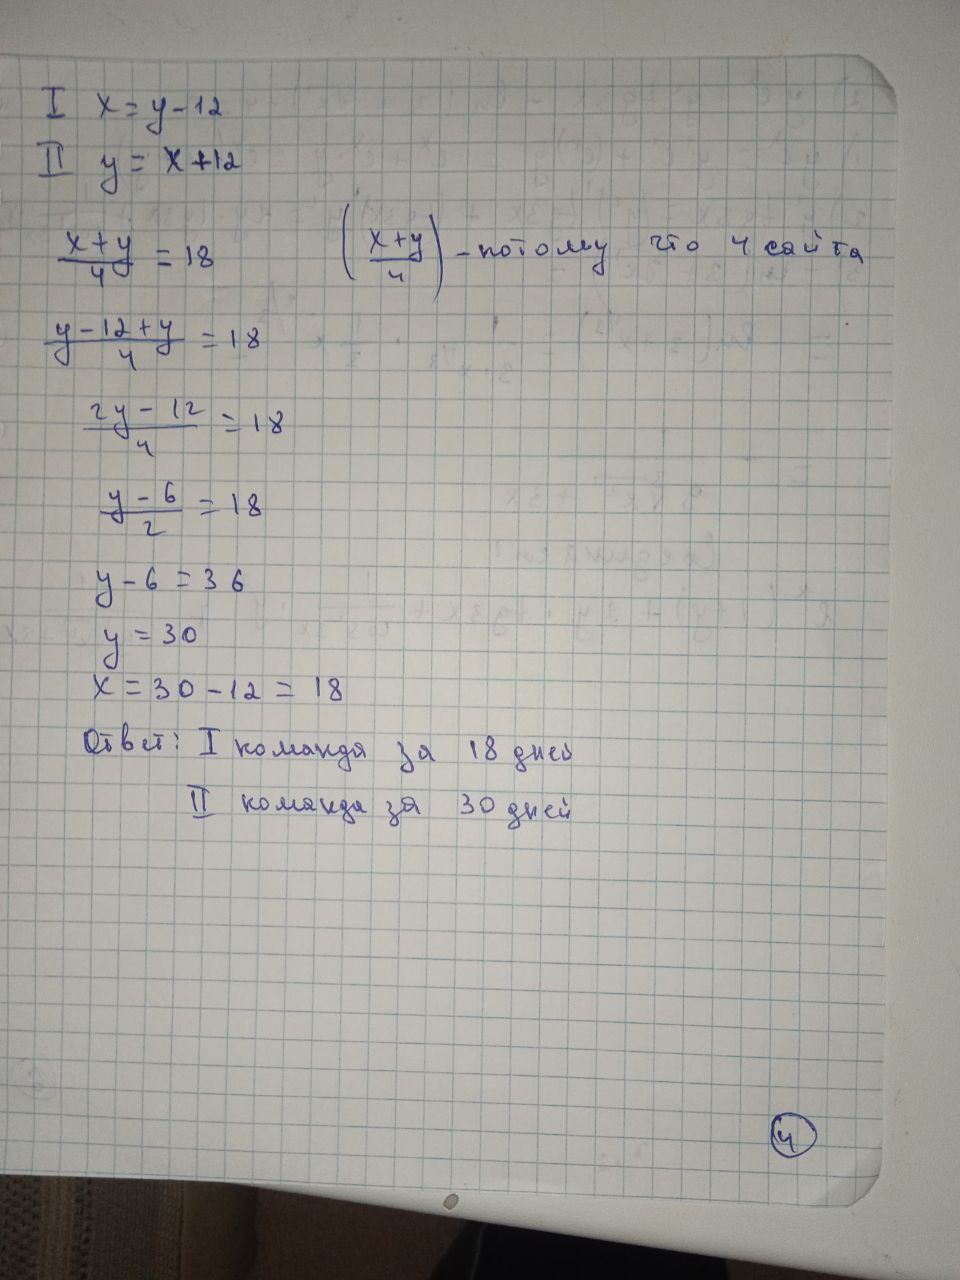 I x = y - 12
II y = x + 12
x + y / 4 = 18 (x + y / 4) - потому что 4 сайта
y - 12 + y / 4 = 18
2y - 12 / 4 = 18
y - 6 / 2 = 18
y - 6 = 36
y = 30
x = 30 - 12 = 18
Ответ: I команда за 18 дней
II команда за 30 дней
4